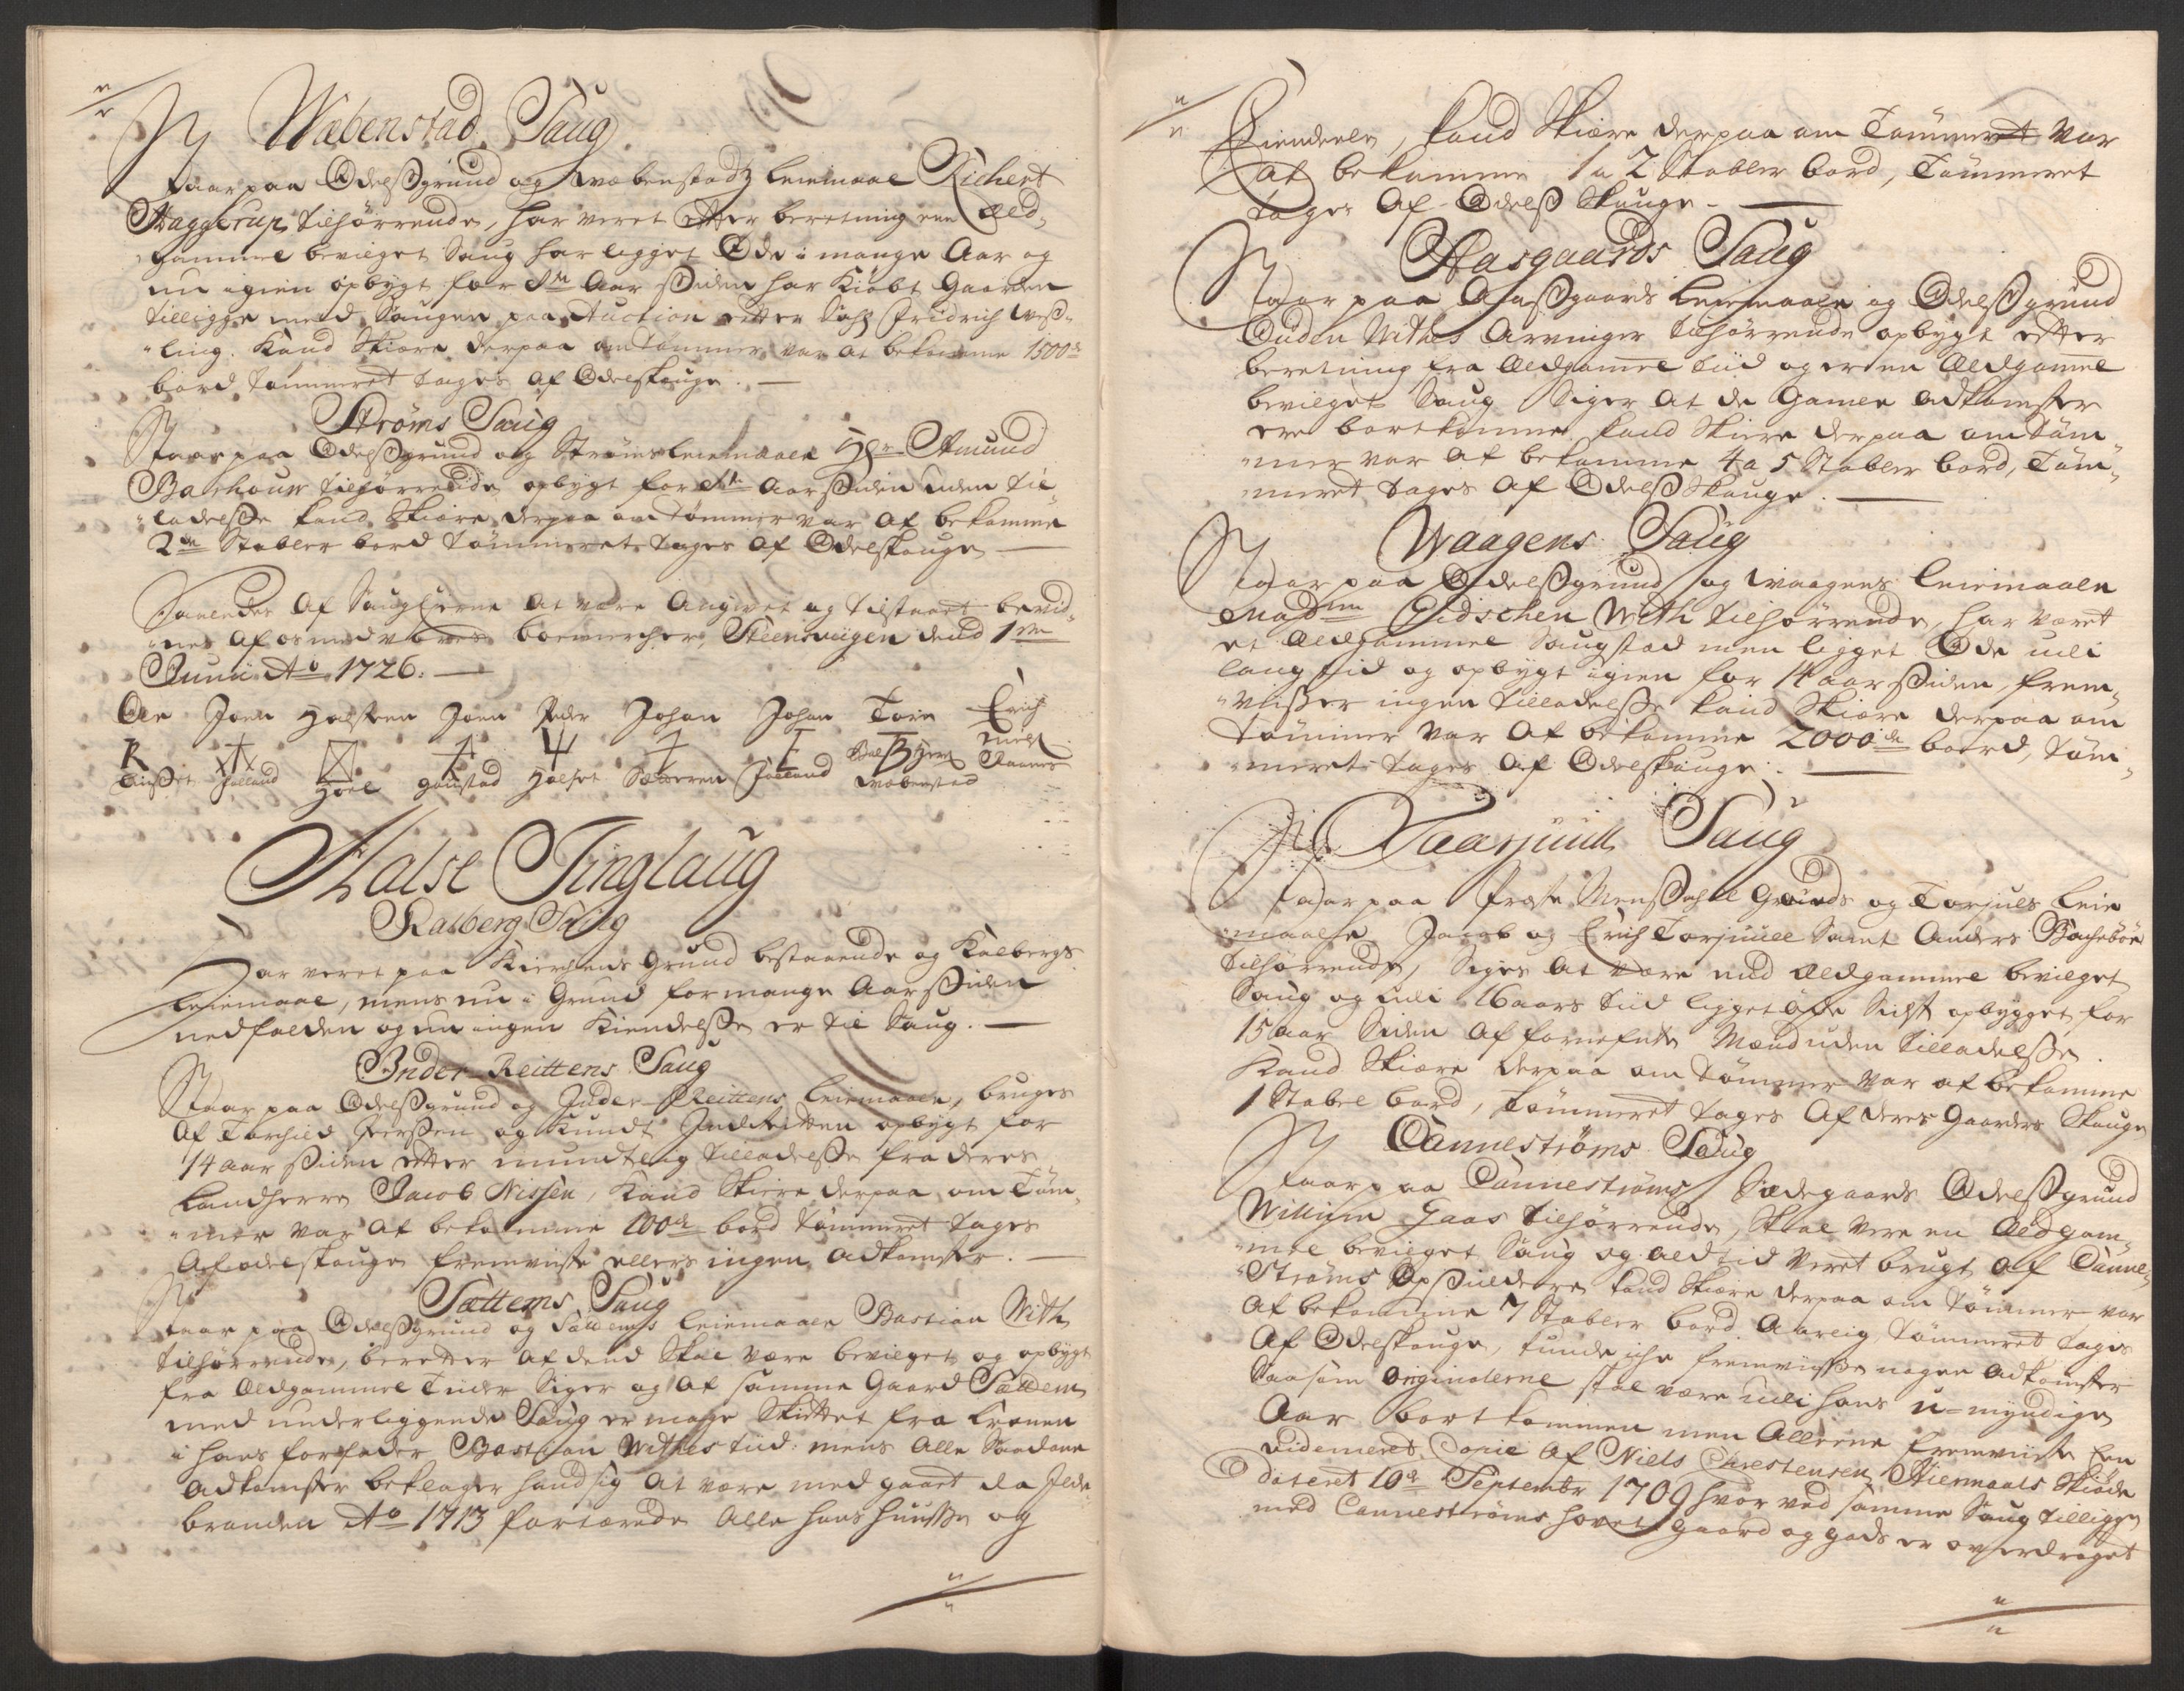 Wæbenstad Saug
Staar paa Odelßgrund og Wæbenstadz Leiemaal Richert
Haggerup tilhørrende, har veret efter beretning een Æld-
gammel bevilget Saug har ligget Øde i mange Aar og
nu igien opbygt for Aar Siden har Kiøbt Gaarden
tilligge med Saugen paa Auction efter Fridrich Weß-
ling. Kand Skiære derpaa om Tømmer var at bekomme 1500de
bord Tømmeret tages af Odelskauge.
Strøms Saug
Staar paa Odelßgrund og Strøms Leiemaal Hr. Amund
Barhoun tilhørrende opbygt for Aar Siden uden til-
ladelße kand Skiære derpaa om Tømmer var at bekomme
2de Stabler bord Tømmeret tages af Odelskauge
Saaledes af Saugejerne at være Angivet og tilstaaet bevid-
nes af os med vores boemercher, Steensvigen dend 1ste
Junii Ao 1726.
Ole Joen Halsten Joen Peder Johan Johan Tore Erich
R Nielß
Halland Hoel Gaustad Halset Sæteren Halland Wæbenstad
Halse Tinglaug
Kalberg Saug
Har veret paa Kierchens Grund bestaaende og Kalbergs
Leiemaal, mens nu i Grund for mange Aar Siden
nedfalden og nu ingen Kiendelße er til Saug.
Inder-Reittens Saug
Staar paa Odelßgrund og Inder-Reittens Leiemaal, bruges
af Torchild Iverßen og Knudt Inderreitten opbygt for
14 aar Siden efter mundtlig tilladelße fra deres
Landherre Jacob Nissen, Kand Skiære derpaa om Tøm-
mer var at bekomme 100de bord Tømmeret tages
af odelskauge fremviiste ellers ingen adkomster.
Sættems Saug
Staar paa Odelßgrund og Sættems Leiemaal Bastian With
tilhørrende, beretter at dend Skal være bevilget og opbygt
fra Ældgammel Tider Siger og at samme Gaard Sættem
med underliggende Saug er mage Skiftet fra Cronen
i hans forfader Bastian Withes tiid. mens alle Saadane
adkomster beklager hand sig at være med gaaet da Ilde
branden Ao 1713 fortærede alle hans Huuße og
Eiendeele, kand Skiære derpaa om Tømmeret var
at bekomme 1 a 2 Stabler bord, Tømmeret
tages af Odelß Skauge.
Aasgaards Saug
Staar paa Aaßgaards Leiemaale og Odelßgrund
Withes Arvinger tilhørrende opbygt efter
beretning fra Ældgamel tiid og er en Ældgamel
bevilget Saug Siger at de Gamle adkomster
ere bortkomne, kand Skiære derpaa om Tøm-
mer var at bekomme 4 a 5 Stabler bord, Tøm-
meret tages af Odelß Skauge.
Waagens Saug
Staar paa Odelßgrund og Waagens Leiemaale
Madme Eidschen With tilhørrende, har været
et Ældgammel Saugstad men ligget Øde udi
lang tid og opbygt igien for 14 aar Siden, frem-
viißer ingen tilladelße kand Skiære derpaa om
Tømmer var at bekomme 2000de bord, Tøm-
meret tages af Odelskauge.
Taarjuuls Saug
Staar paa Præste Grunds og Torjuls Leie
maale Jacob og Erich Torjuul Samt Anders Bachebøe
tilhørrende, Siges at være end Ældgammel bevilget
Saug og udi 16 aars tiid ligget øde Sidst opbygget for
15 aar Siden af fornefnte Mænd uden tilladelße.
Kand Skiære derpaa om Tømmer var at bekomme
1 Stabel bord, Tømmeret tages af deres Gaarders Skauge
Canneströms Saug
Staar paa Canneströms Sædegaards Odelßgrund
Willum Gaas tilhørrende, Skal være en Ældgam-
mel bevilget Saug og altid Veret brugt af Canne-
Ströms Opsiddere kand Skiære derpaa om Tømmer var
at bekomme 7 Stabler bord Aarlig, Tømmeret tages
af Odelskauge, kunde iche fremviiße nogen adkomster
saasom originalerne skal være udi hans u-myndige
Aar bortkommen men Allene fremviiste Een
videmeret Copie af Niels Christensen Hiermands Skiøde
dateret 10de Septembr 1709 hvor ved samme Saug tilligge
med Canneströms hovet gaard og gods er overdraget